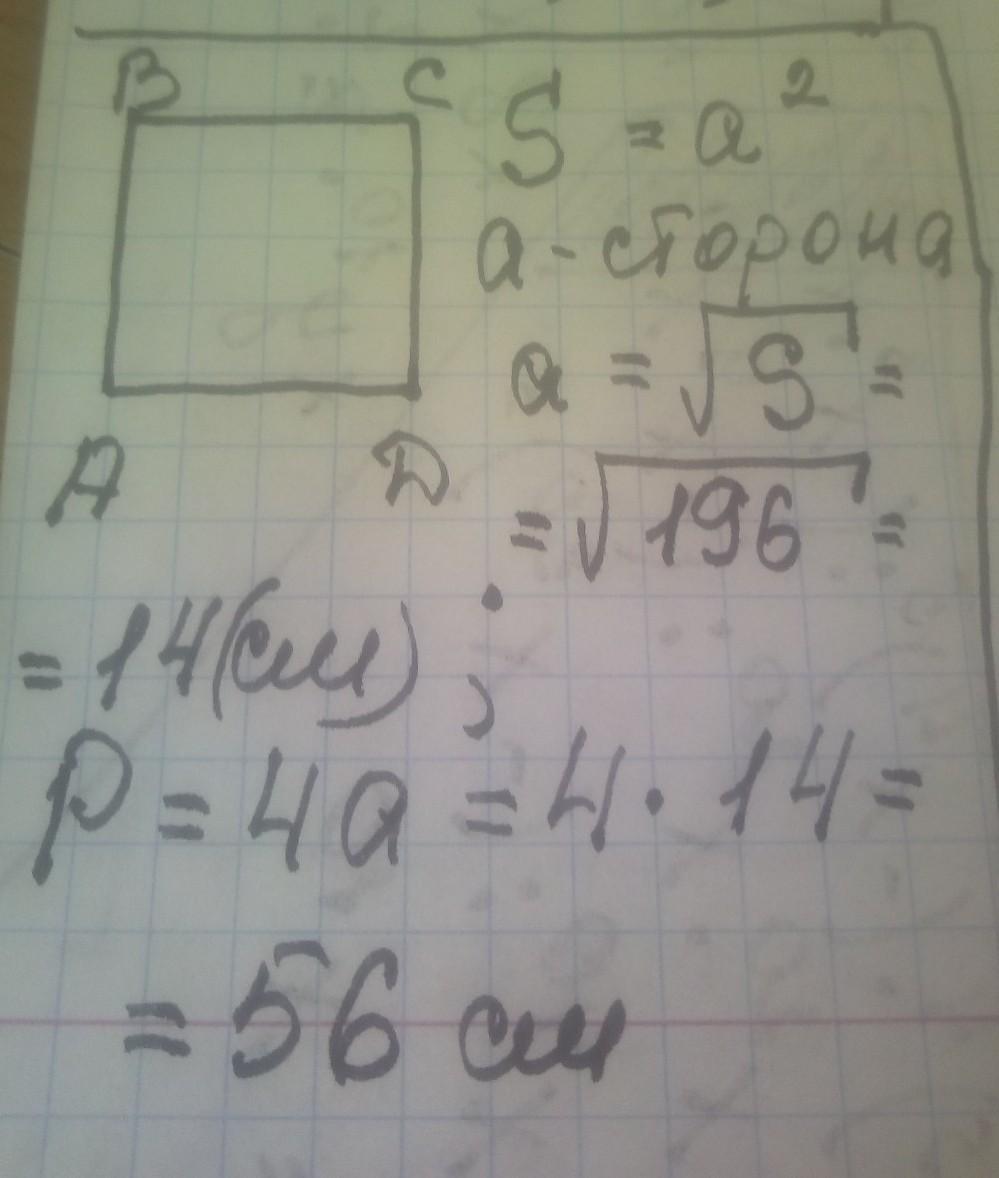 B C
S = a²
a - сторона
a = √S =
A D
= √196 =
= 14(см);
P = 4a = 4 · 14 =
= 56 см